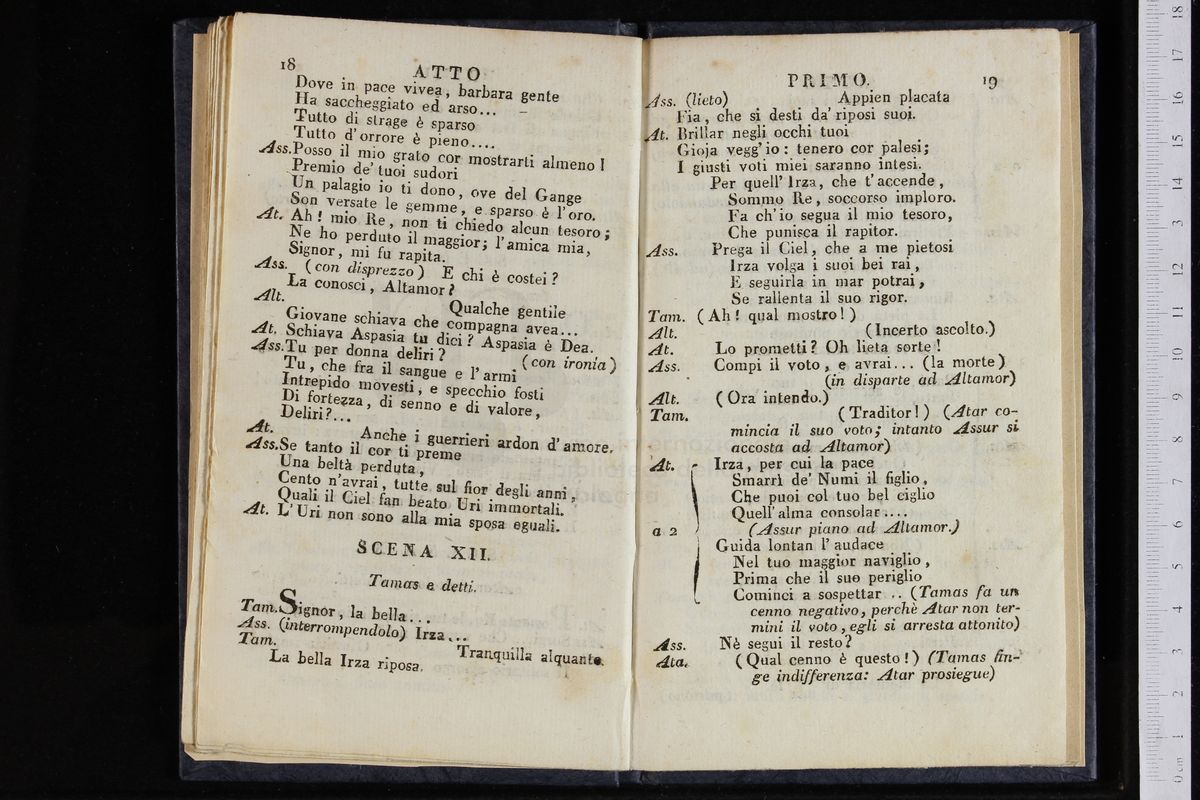 18 ATTO
Dove in pace vivea, barbara gente
Ha saccheggiato ed arso...
Tutto di strage è sparso
Tutto d'orrore è pieno....
Ass. Posso il mio grato cor mostrarti almeno!
Premio de' tuoi sudori
Un palagio io ti dono, ove del Gange
Son versate le gemme, e sparso è l'oro.
At. Ah! mio Re, non ti chiedo alcun tesoro;
Ne ho perduto il maggior; l'amica mia,
Signor, mi fu rapita.
Ass. (con disprezzo) E chi è costei?
La conosci, Altamor?
Alt. Qualche gentile
Giovane schiava che compagna avea...
At. Schiava Aspasia tu dici? Aspasia è Dea.
Ass. Tu per donna deliri? (con ironia)
Tu, che fra il sangue e l'armi
Intrepido movesti, e specchio fosti
Di fortezza, di senno e di valore,
Deliri?...
At. Anche i guerrieri ardon d'amore.
Ass. Se tanto il cor ti preme
Una beltà perduta,
Cento n'avrai, tutte sul fior degli anni,
Quali il Ciel fan beato Uri immortali.
At. L'Uri non sono alla mia sposa eguali.
SCENA XII.
Tamas e detti.
Tam. Signor, la bella...
Ass. (interrompendolo) Irza...
Tam. Tranquilla alquanto
La bella Irza riposa.
PRIMO. 19
Ass. (lieto) Appien placata
Fia, che si desti da' riposi suoi.
At. Brillar negli occhi tuoi
Gioja vegg'io: tenero cor palesi;
I giusti voti miei saranno intesi.
Per quell' Irza, che t'accende,
Sommo Re, soccorso imploro.
Fa ch'io segua il mio tesoro,
Che punisca il rapitor.
Ass. Prega il Ciel, che a me pietosi
Irza volga i suoi bei rai,
E seguirla in mar potrai,
Se rallenta il suo rigor.
Tam. (Ah! qual mostro!)
Alt. (Incerto ascolto.)
At. Lo prometti? Oh lieta sorte!
Ass. Compi il voto, e avrai... (la morte)
(in disparte ad Altamor)
Alt. (Ora intendo.)
Tam. (Traditor!) (Atar co-
mincia il suo voto; intanto Assur si
accosta ad Altamor)
At. Irza, per cui la pace
Smarrì de' Numi il figlio,
Che puoi col tuo bel ciglio
Quell'alma consolar....
a 2 (Assur piano ad Altamor.)
Guida lontan l'audace
Nel tuo maggior naviglio,
Prima che il suo periglio
Cominci a sospettar .. (Tamas fa un
cenno negativo, perchè Atar non ter-
mini il voto, egli si arresta attonito)
Ass. Nè segui il resto?
Ata. (Qual cenno è questo!) (Tamas fin-
ge indifferenza: Atar prosiegue)